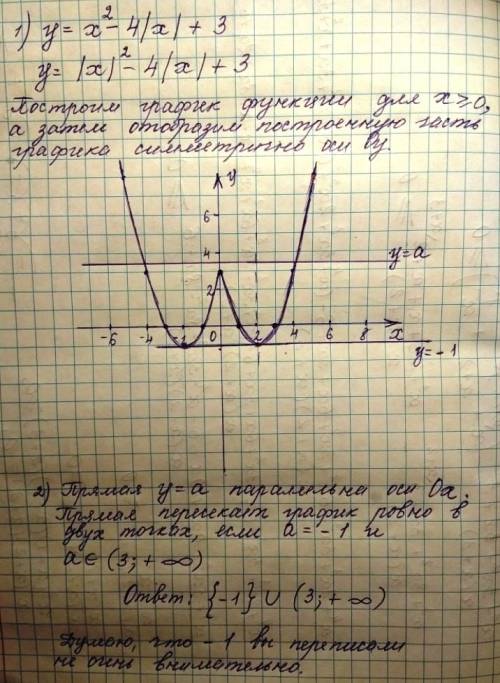 1) y = x² - 4|x| + 3
y = |x|² - 4|x| + 3
Построим график функции для x ≥ 0,
а затем отобразим построенную часть
графика симметрично оси Oy.
y
6
4
y = a
2
-6 -4 -2 0 2 4 6 8 x
y = -1
2) Прямая y = a параллельна оси Ox.
Прямая пересекает график ровно в
двух точках, если a = -1 и
a ∈ (3; +∞)
Ответ: {-1} ∪ (3; +∞)
Думаю, что -1 вы переписали
не очень внимательно.